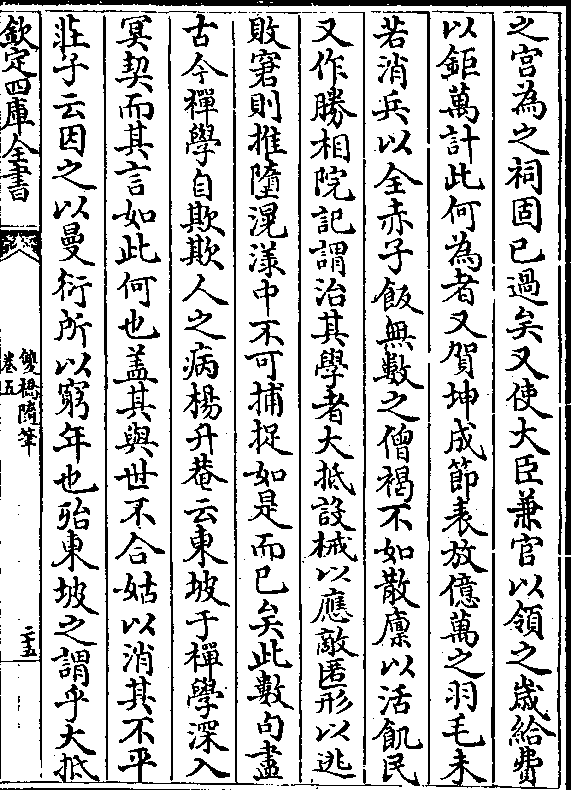 之宫為之祠固已過矣又使大臣兼官以領之嵗給費
以鉅萬計此何為者又賀坤成節表放億萬之羽毛未
若消兵以全赤子飯無數之僧褐不如散廪以活飢民
又作勝相院記謂治其學者大抵設械以應敵匿形以逃
敗窘則推墮滉漾中不可捕捉如是而已矣此數句盡
古今禪學自欺欺人之病楊升菴云東坡于禪學深入
冥契而其言如此何也葢其與世不合姑以消其不平
莊子云因之以曼衍所以窮年也殆東坡之謂乎大抵
欽定四庫全書
雙橋隨筆
卷五
二五